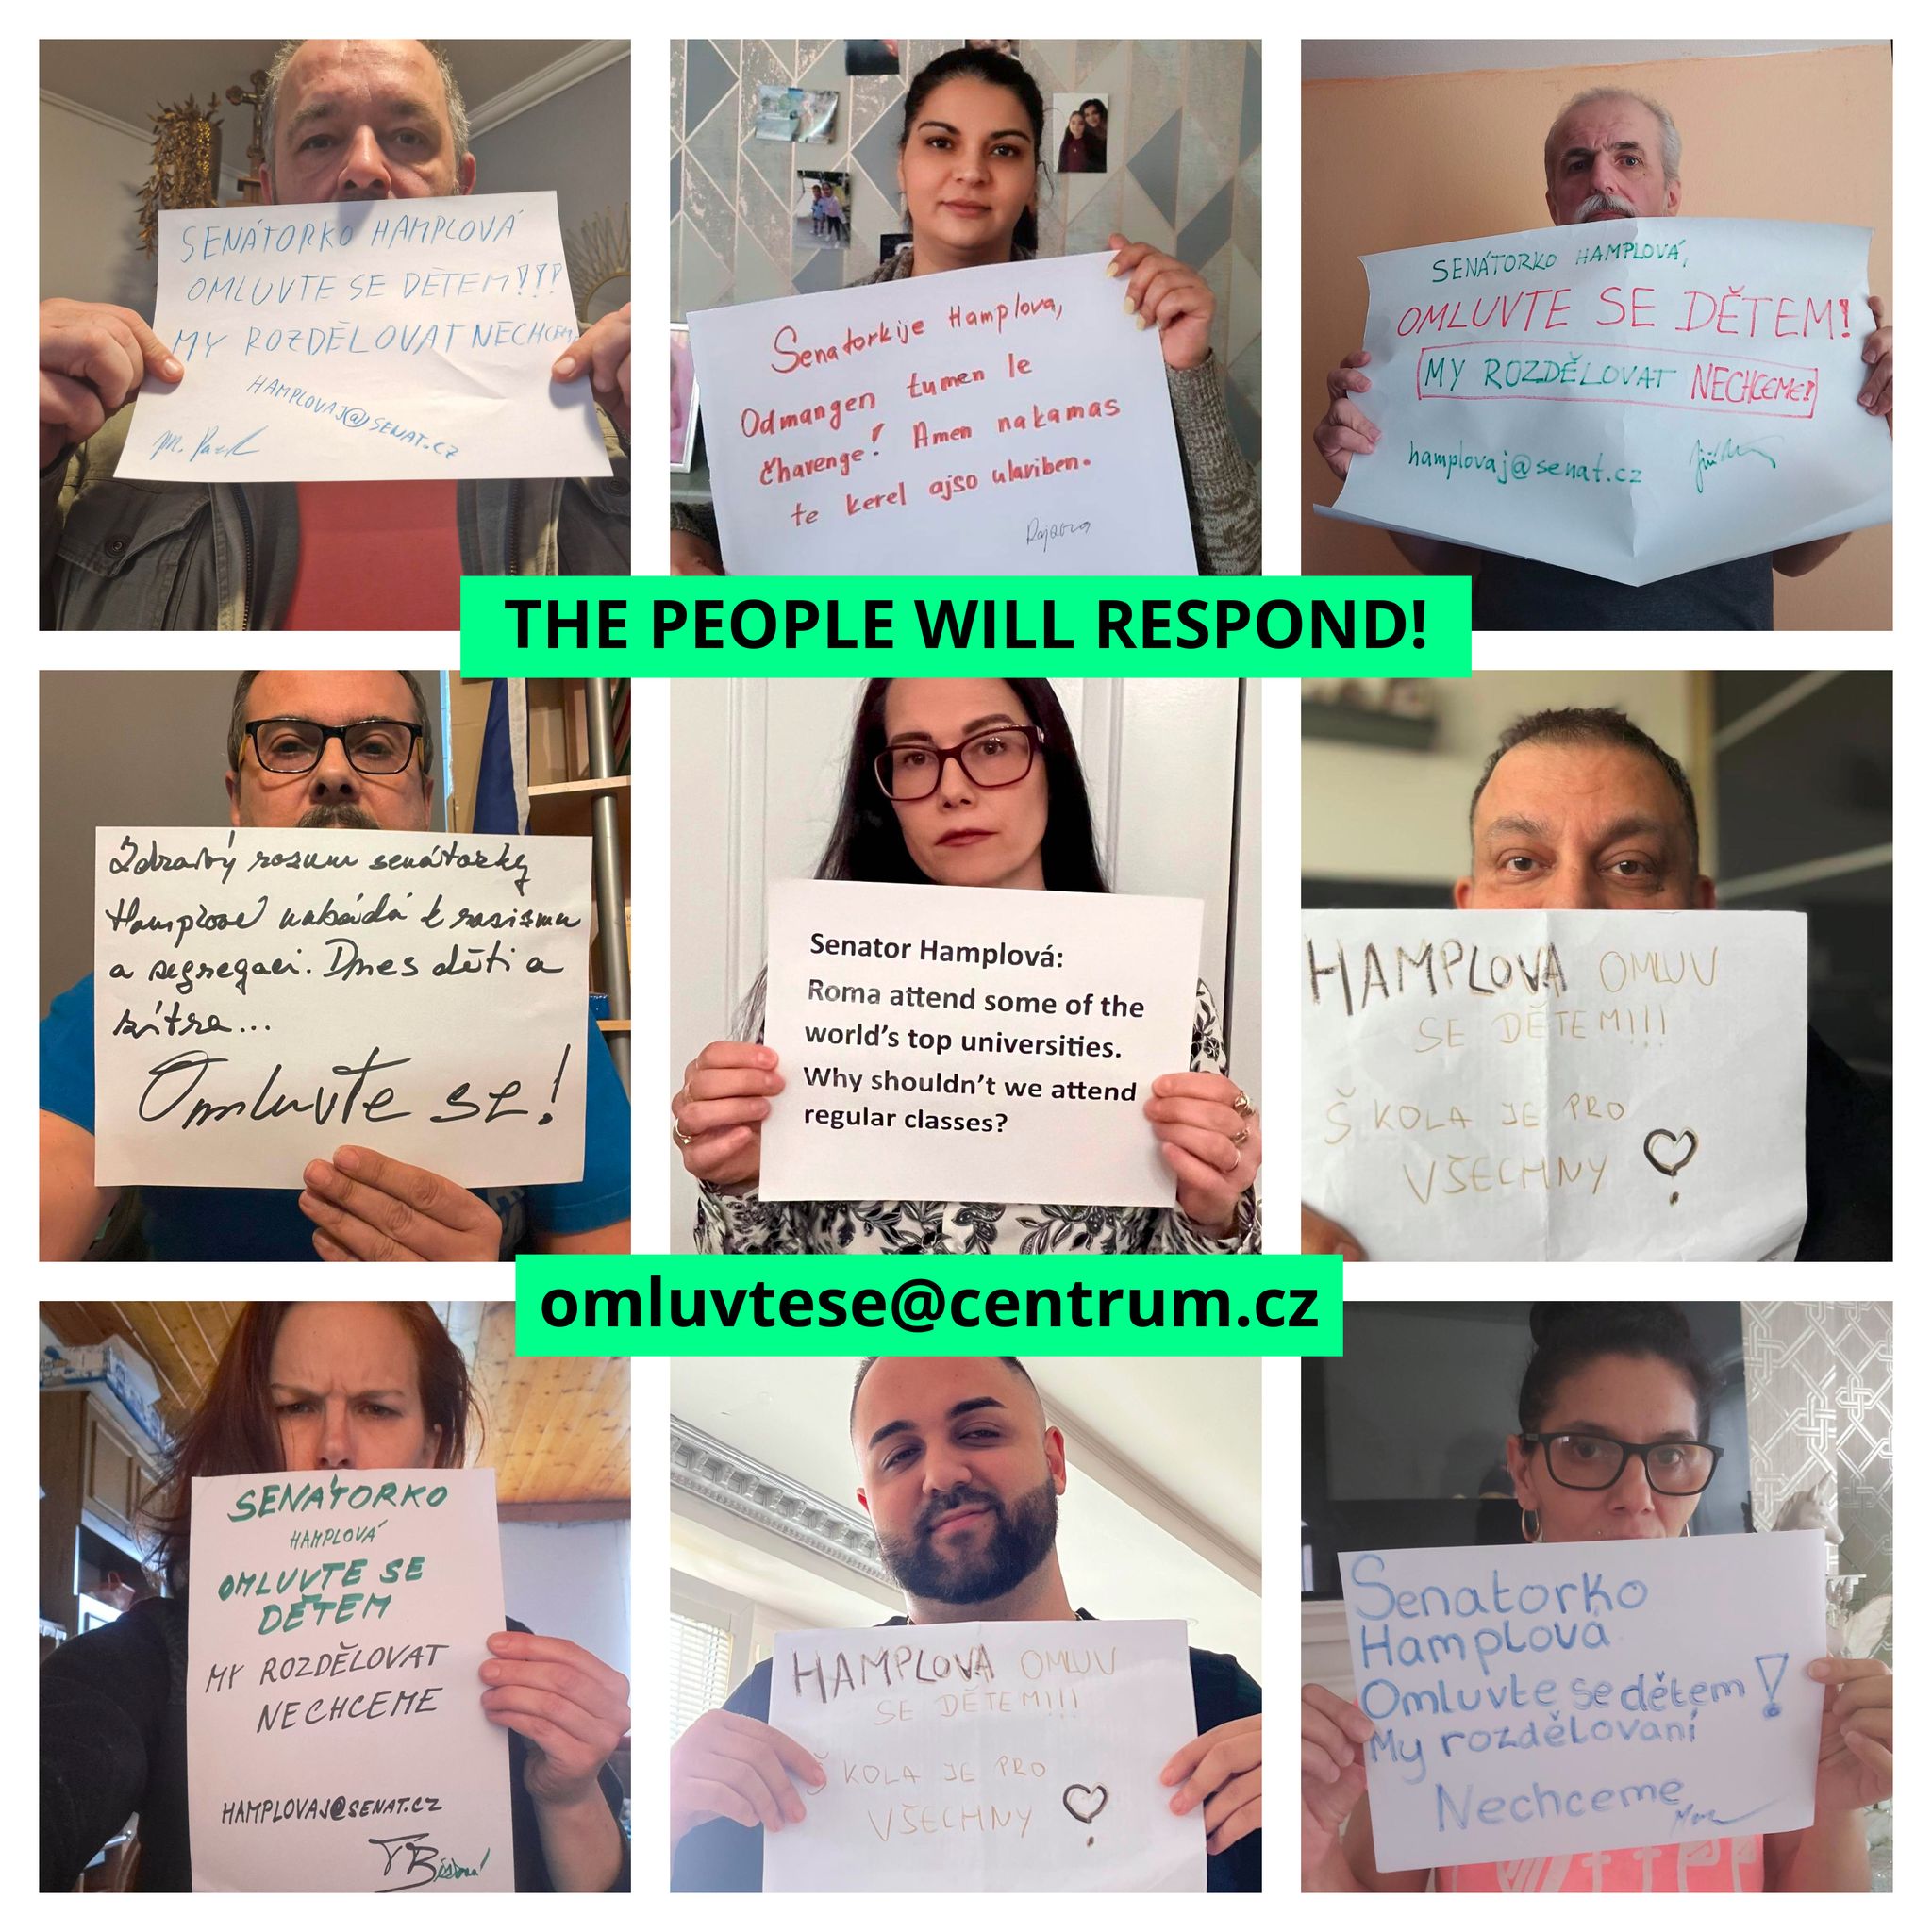 SENÁTORKO HAMPLOVÁ
OMLUVTE SE DĚTEM!!!
MY ROZDĚLOVAT NECHCEME
HAMPLOVAJ@SENAT.CZ
Senatorkije Hamplova,
Odmangen tumen le
čhavenge! Amen nakamas
te kerel ajso ulaviben.
SENÁTORKO HAMPLOVÁ,
OMLUVTE SE DĚTEM!
MY ROZDĚLOVAT NECHCEME!
hamplovaj@senat.cz
THE PEOPLE WILL RESPOND!
Zdravý rozum senátorky
Hamplové nabádá k rasismu
a segregaci. Dnes děti a
zítra...
Omluvte se!
Senator Hamplová:
Roma attend some of the
world's top universities.
Why shouldn't we attend
regular classes?
HAMPLOVA OMLUV
SE DĚTEM!!!
ŠKOLA JE PRO
VŠECHNY
omluvtese@centrum.cz
SENÁTORKO
HAMPLOVÁ
OMLUVTE SE
DĚTEM
MY ROZDĚLOVAT
NECHCEME
HAMPLOVAJ@SENAT.CZ
HAMPLOVA OMLUV
SE DĚTEM!!!
ŠKOLA JE PRO
VŠECHNY
Senatorko
Hamplová
Omluvte se dětem!
My rozdělovaní
Nechceme